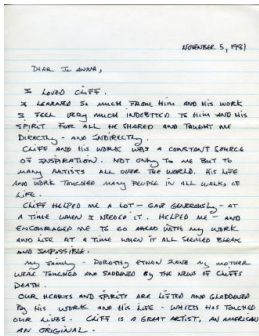 NOVEMBER 5, 1981
DEAR JO ANNA,
I LOVED CLIFF.
I LEARNED SO MUCH FROM HIM AND HIS WORK
I FEEL VERY MUCH INDEBTED TO HIM AND HIS
SPIRIT FOR ALL HE SHARED AND TAUGHT ME
DIRECTLY - AND INDIRECTLY.
CLIFF AND HIS WORK WAS A CONSTANT SOURCE
OF INSPIRATION. NOT ONLY TO ME BUT TO
MANY ARTISTS ALL OVER THE WORLD. HIS LIFE
AND WORK TOUCHED MANY PEOPLE IN ALL WALKS OF
LIFE.
CLIFF HELPED ME A LOT - GAVE GENEROUSLY - AT
A TIME WHEN I NEEDED IT. HELPED ME - AND
ENCOURAGED ME TO GO AHEAD WITH MY WORK
AND LIFE AT A TIME WHEN IT ALL SEEMED BLEAK
AND IMPOSSIBLE.
MY FAMILY - DOROTHY ETHAN ZANE AND MY MOTHER
WERE TOUCHED AND SADDENED BY THE NEWS OF CLIFFS
DEATH.
OUR HEARTS AND SPIRITS ARE LIFTED AND GLADDENED
BY HIS WORK AND HIS LIFE - WHICH HAS TOUCHED
OUR LIVES. CLIFF IS A GREAT ARTIST, AN AMERICAN
AN ORIGINAL.